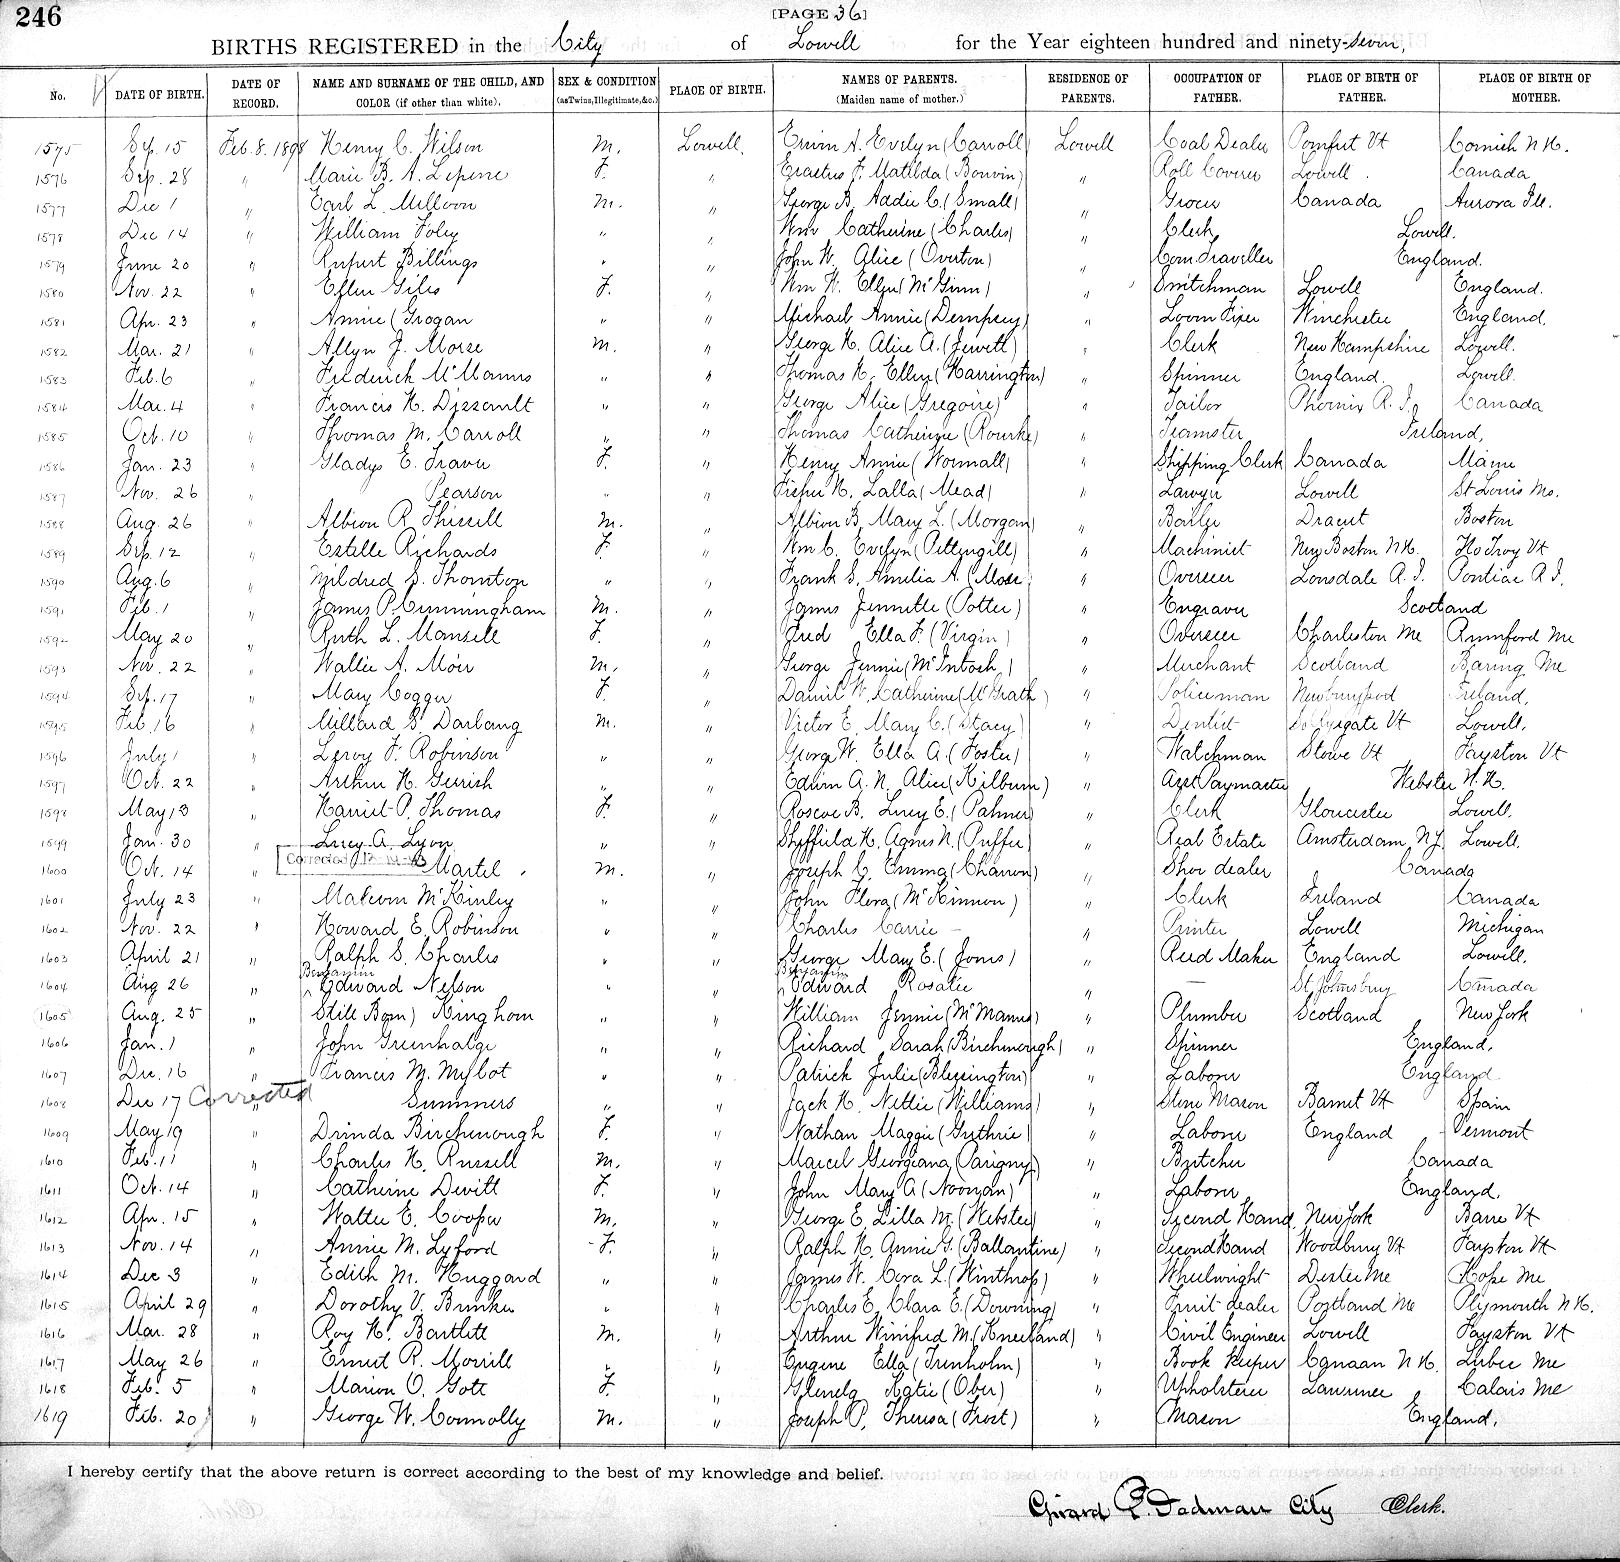 246
[PAGE 36]
BIRTHS REGISTERED in the City of Lowell for the Year eighteen hundred and ninety-seven,
No. DATE OF BIRTH. DATE OF RECORD. NAME AND SURNAME OF THE CHILD, AND COLOR (if other than white). SEX & CONDITION (as Twins, Illegitimate, &c.) PLACE OF BIRTH. NAMES OF PARENTS. (Maiden name of mother.) RESIDENCE OF PARENTS. OCCUPATION OF FATHER. PLACE OF BIRTH OF FATHER. PLACE OF BIRTH OF MOTHER.
1575 Sep. 15 Feb. 8. 1898 Henry C. Wilson M. Lowell. Erwin A. Evelyn (Carroll) Lowell Coal Dealer Pomfret Vt Cornish N.H.
1576 Sep. 28 " Marie B. A. Lepine F. " Erastus F. Matilda (Bouvin) " Roll Coverer Lowell. Canada
1577 Dec 1 " Earl L. Milloon M. " George B. Addie C. (Small) " Grocer Canada Aurora Ill.
1578 Dec 14 " William Foley " " Wm Catherine (Charles) " Clerk Lowell.
1579 June 20 " Rupert Billings " " John W. Alice (Overton) " Com. Traveller England.
1580 Nov. 22 " Effie Giles F. " Wm H. Ellen (McGinn) " Switchman Lowell England.
1581 Apr. 23 " Annie Grogan " " Michael Annie (Dempsey) " Loom Fixer Winchester England.
1582 Mar. 21 " Allyn J. Morse M. " George H. Alice A. (Jewett) " Clerk New Hampshire Lowell.
1583 Feb. 6 " Frederick McManus " " Thomas H. Ellen (Harrington) " Spinner England. Lowell.
1584 Mar. 4 " Francis H. Dissault " " George Alice (Gregoire) " Tailor Phoenix R.I. Canada
1585 Oct. 10 " Thomas M. Carroll " " Thomas Catherine (Rourke) " Teamster Ireland,
1586 Jan. 23 " Gladys E. Traver F. " Henry Annie (Wormall) " Shipping Clerk Canada Maine
1587 Nov. 26 " Pearson " " Fisher H. Lalla (Mead) " Lawyer Lowell St Louis Mo.
1588 Aug. 26 " Albion R. Thissell M. " Albion B. Mary L. (Morgan) " Dracut Boston
1589 Sep. 12 " Estelle Richards F. " Wm C. Evelyn (Pettengill) " Machinist New Boston N.H. No Troy Vt
1590 Aug. 6 " Mildred S. Thornton " " Frank S. Amelia A. (Mose) " Overseer Lonsdale R.I. Pontiac R.I.
1591 Feb. 1 " James P. Cunningham M. " James Jennette (Potter) " Engraver Scotland
1592 May 20 " Ruth L. Mansell F. " Fred Ella F. (Virgin) " Overseer Charleston Me Rumford Me
1593 Nov. 22 " Wallie A. Moir M. " George Jennie (McIntosh) " Merchant Scotland Baring Me
1594 Sep. 17 " Mary Cogger F. " Daniel W. Catherine (McGrath) " Policeman Newburyport Ireland,
1595 Feb. 16 " Millard S. Darbang M. " Victor E. Mary C. (Stacy) " Dentist Vt Lowell.
1596 July 1 " Leroy F. Robinson " " George W. Ella A. (Foster) " Watchman Stowe Vt Fayston Vt
1597 Oct. 22 " Arthur H. Gerrish " " Edwin A. N. Alice (Kilburn) " Asst Paymaster Webster N.H.
1598 May 13 " Harriet P. Thomas F. " Roscoe B. Lucy E. (Palmer) " Clerk Gloucester Lowell.
1599 Jan. 30 " Lucy A. Lyon " " Sheffield H. Agnes N. (Puffer) " Real Estate Amsterdam N.Y. Lowell.
Corrected
1600 Oct. 14 " Martel M. " Joseph C. Emma (Charron) " Shoe dealer Canada
1601 July 23 " Malcom McKinley " " John Flora (McKinnon) " Clerk Ireland Canada
1602 Nov. 22 " Howard E. Robinson " " Charles Carrie — " Printer Lowell Michigan
1603 April 21 " Ralph S. Charles " " George Mary E. (Jones) " Reed Maker England Lowell.
Benjamin Benjamin
1604 Aug 26 " Edward Nelson " " Edward Rosalie " — St Johnsbury Canada
1605 Aug. 25 " Still Born) Kinghorn " " William Jennie (McManus) " Plumber Scotland New York
1606 Jan. 1 " John Greenhalge " " Richard Sarah (Birchenough) " Spinner England.
1607 Dec. 16 " Francis M. Mylot " " Patrick Julie (Blessington) " Laborer England
1608 Dec 17 Corrected " Summers " " Jack H. Nettie (Williams) " Stone Mason Barnet Vt Spain
1609 May 19 " Drinda Birchenough F. " Nathan Maggie (Guthrie) " Laborer England Vermont
1610 Feb. 11 " Charles H. Russell M. " Marcel Georgiana (Parigny) " Butcher Canada
1611 Oct. 14 " Catherine Devitt F. " John Mary A (Noonan) " Laborer England.
1612 Apr. 15 " Walter E. Cooper M. " George E. Lilla M. (Webster) " Second Hand New York Barre Vt
1613 Nov. 14 " Annie M. Lyford F. " Ralph H. Annie G. (Ballantine) " Second Hand Woodbury Vt Fayston Vt
1614 Dec 3 " Edith M. Huggard " " James W. Cora L. (Winthrop) " Wheelwright Dexter Me Hope Me
1615 April 29 " Dorothy V. Bunker " " Charles E. Clara E. (Downing) " Fruit dealer Portland Me Plymouth N.H.
1616 Mar. 28 " Roy H. Bartlett M. " Arthur Winifred M. (Kneeland) " Civil Engineer Lowell Fayston Vt
1617 May 26 " Ernest R. Morrill " " Eugene Ella (Trenholm) " Book Keeper Canaan N.H. Lubec Me
1618 Feb. 5 " Marion O. Gote F. " Glenelg Katie (Ober) " Upholsterer Lawrence Calais Me
1619 Feb. 20 " George W. Connolly M. " Joseph P. Theresa (Frost) " Mason England.
I hereby certify that the above return is correct according to the best of my knowledge and belief.
Girard P. Dadman City Clerk.